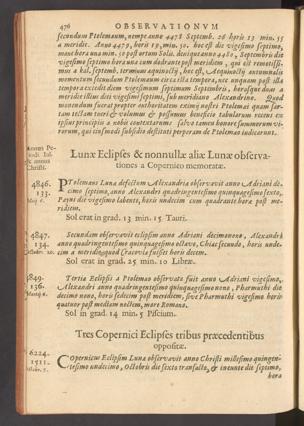 476 OBSERVATIONVM
secundum Ptolemaum, nempe anno 4478 Septemb. 26 horis 13 min. 55
a meridie. Anno 4479, horis 19, min. 50. hoc est die vigesimo septimo,
mane hora una min. 50 post ortum Solis. denique anno 4480, Septembris die
vigesimo septimo hora una cum dodrante post meridiem, qui est remotissi-
mus a kal. septemb. terminus aequinoctij, hoc est, Aequinoctij autumnalis
momentum secundum Ptolemaeum certissima tempora, nec unquam post illa
tempora excedit diem vigesimum septimum Septembris, horasque duas a
meridie illius diei vigesimi septimi, sub meridiano Alexandrino. Quod
monendum fuerat propter authoritatem eximij nostri Ptolemaei quam sar-
tam tectam tueri & volumus & possumus beneficio tabularum veteri ex
ipsius principiis a nobis contextarum: salvo tamen honore summorum vi-
rorum, qui eiusmodi subsidio destituti perperam de Ptolemaeo iudicarunt.
Lunæ Eclipses & nonnullæ aliæ Lunæ observa-
tiones a Copernico memoratæ.
Annus Pe-
riodi Iul.
& annus
Christi.
4846.
133.
Maij 6.
PTolemaeus Lunae defectum Alexandria observavit anno Adriani de-
cimo septimo, anno Alexandri quadringentesimo quinquagesimo sexto,
Payni die vigesimo labente, horis undecim cum quadrante hora post me-
ridiem.
Sol erat in grad. 13 min. 15 Tauri.
4847.
134.
Octobr. 20.
Secundam observavit eclipsim anno Adriani decimonono, Alexandri
anno quadringentesimo quinquagesimo octavo, Chiac secundo, horis unde-
cim a meridie, quod Cracoviae fuisset horis decem.
Sol erat in grad. 25 min. 10 Libræ.
4849.
136.
Martij 6.
Tertia Eclipsis a Ptolemaeo observata fuit anno Adriani vigesimo,
Alexandri anno quadringentesimo quinquagesimo nono, Pharmuthi die
decimo nono, horis sedecim post meridiem, sive Pharmuthi vigesimo horis
quatuor post mediam noctem, more Romano.
Sol in grad. 14 min. 5 Piscium.
Tres Copernici Eclipses tribus præcedentibus
oppositæ.
6224.
1511.
COpernicus Eclipsim Lunae observavit anno Christi millesimo quingen-
tesimo undecimo, Octobris die sexto transacto, & ineunte die septimo,
hora